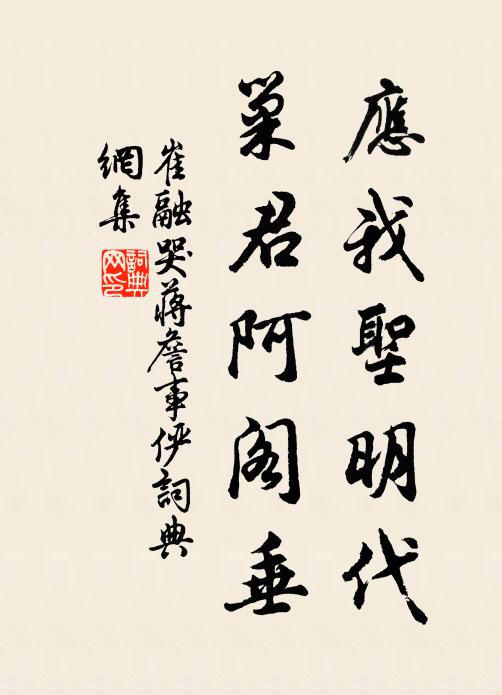 應我聖明代
巢君阿阁垂
崔融哭蔣詹事俨詞典
網集
詞典
网印